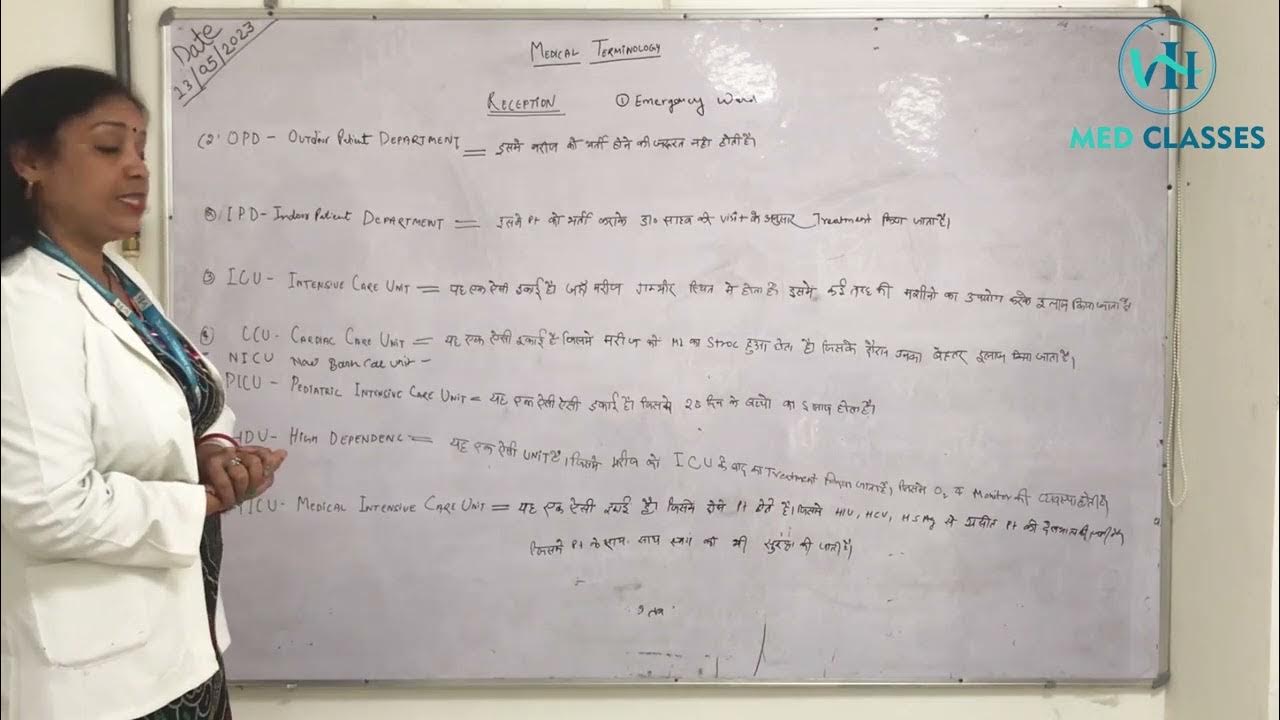 Date
23/05/2023
MEDICAL TERMINOLOGY
VH
MED CLASSES
RECEPTION ① Emergency Ward
(2) OPD - Outdoor Patient DEPARTMENT = इसमे मरीज को भर्ती होने की जरूरत नही होती है।
③ IPD - Indoor Patient DEPARTMENT = इसमे Pt को भर्ती करके डा० साहब के visit के अनुसार Treatment किया जाता है।
③ ICU - INTENSIVE CARE UNIT = यह एक ऐसी इकाई है। जहाँ मरीज गम्भीर स्थित मे होता है। इसमे कई तरह की मशीनो का उपयोग करके इलाज किया जाता है।
④ CCU - CARDIAC CARE UNIT = यह एक ऐसी इकाई है जिसमे मरीज को MI का Stroc हुआ होता है। जिसके दौरान उनका बेहतर इलाज किया जाता है।
NICU New Born Care unit -
PICU - PEDIATRIC INTENSIVE CARE UNIT = यह एक ऐसी ऐसी इकाई है। जिसमे 28 दिन के बच्चो का इलाज होता है।
HDU - HIGH DEPENDENC = यह एक ऐसी UNIT है, जिसमे मरीज को ICU के बाद का Treatment किया जाता है, जिसमे O₂ व Monitor की व्यवस्था होती है
MICU - MEDICAL INTENSIVE CARE UNIT = यह एक ऐसी इकाई है। जिसमे ऐसे Pt होते है। जिसमे HIV, HCV, से Pt की
जिसमे Pt के साथ साथ स्वयं की भी सुरक्षा की जाती है।